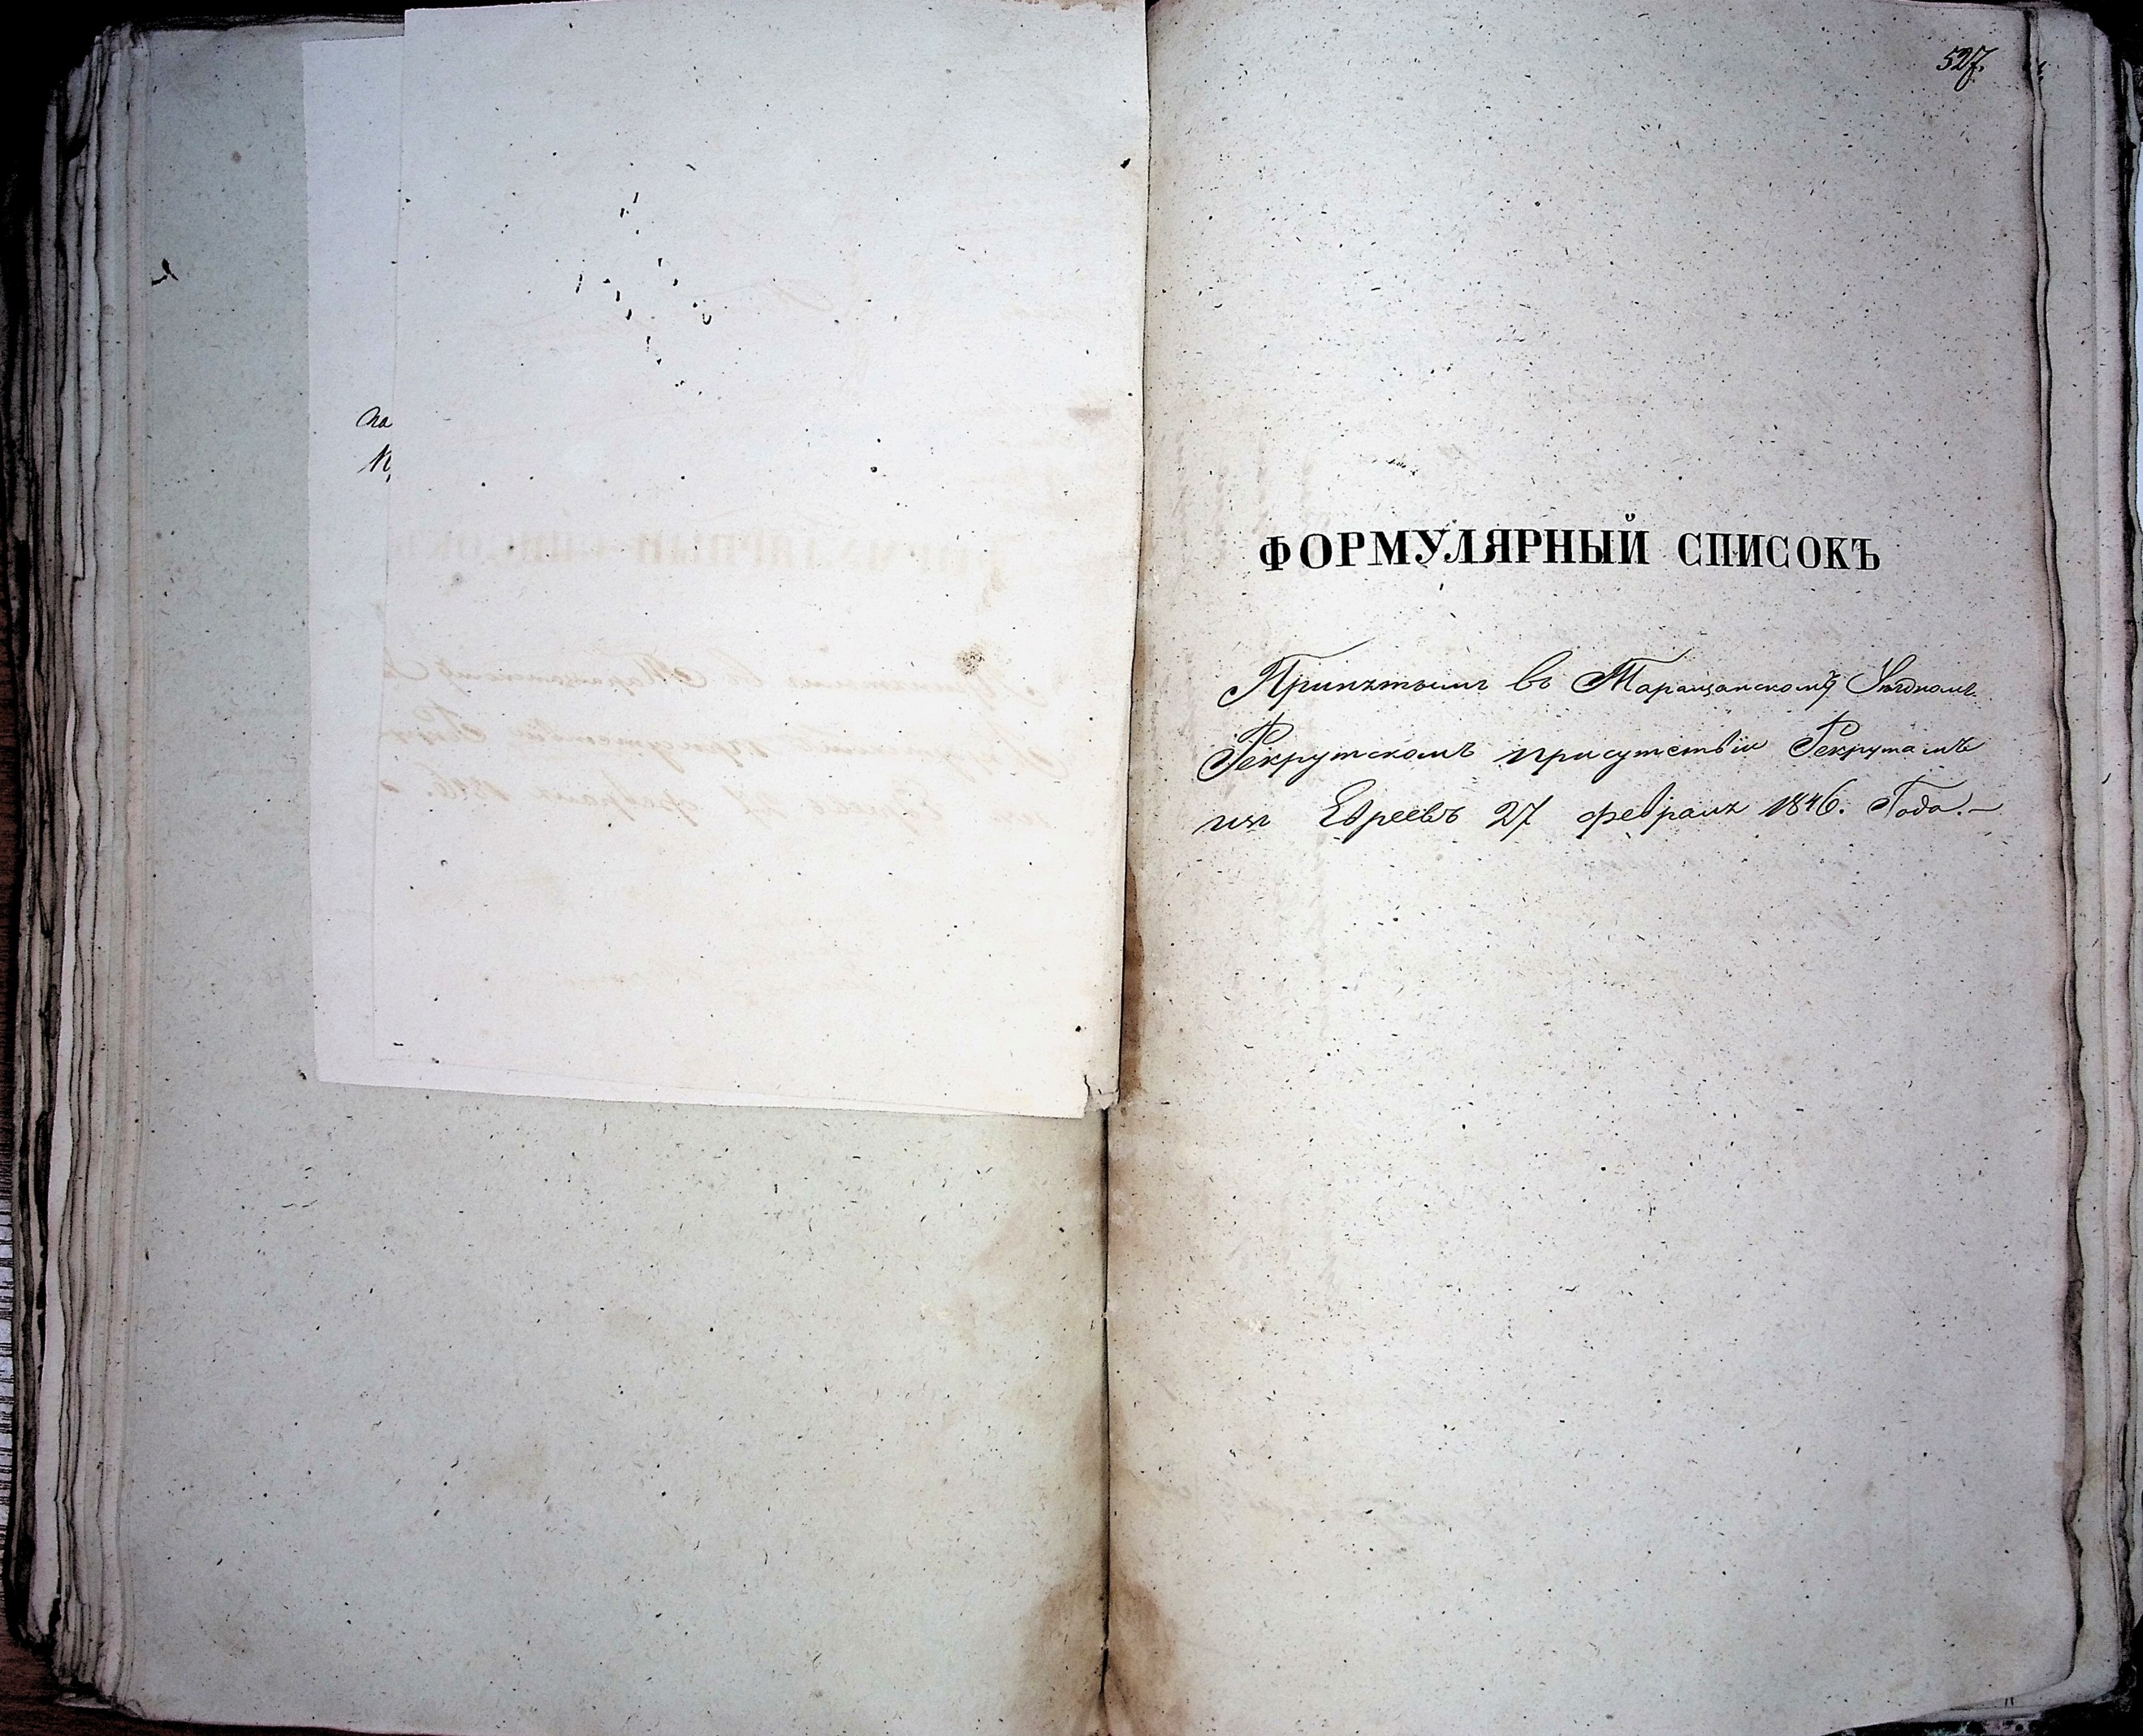 на
527.
ФОРМУЛЯРНЫЙ СПИСОКЪ
Принятымъ въ Таращанскомъ Уѣздномъ
Рекрутскомъ присутствіи Рекрутамъ
изъ Евреевъ 27 февраля 1846. Года. —